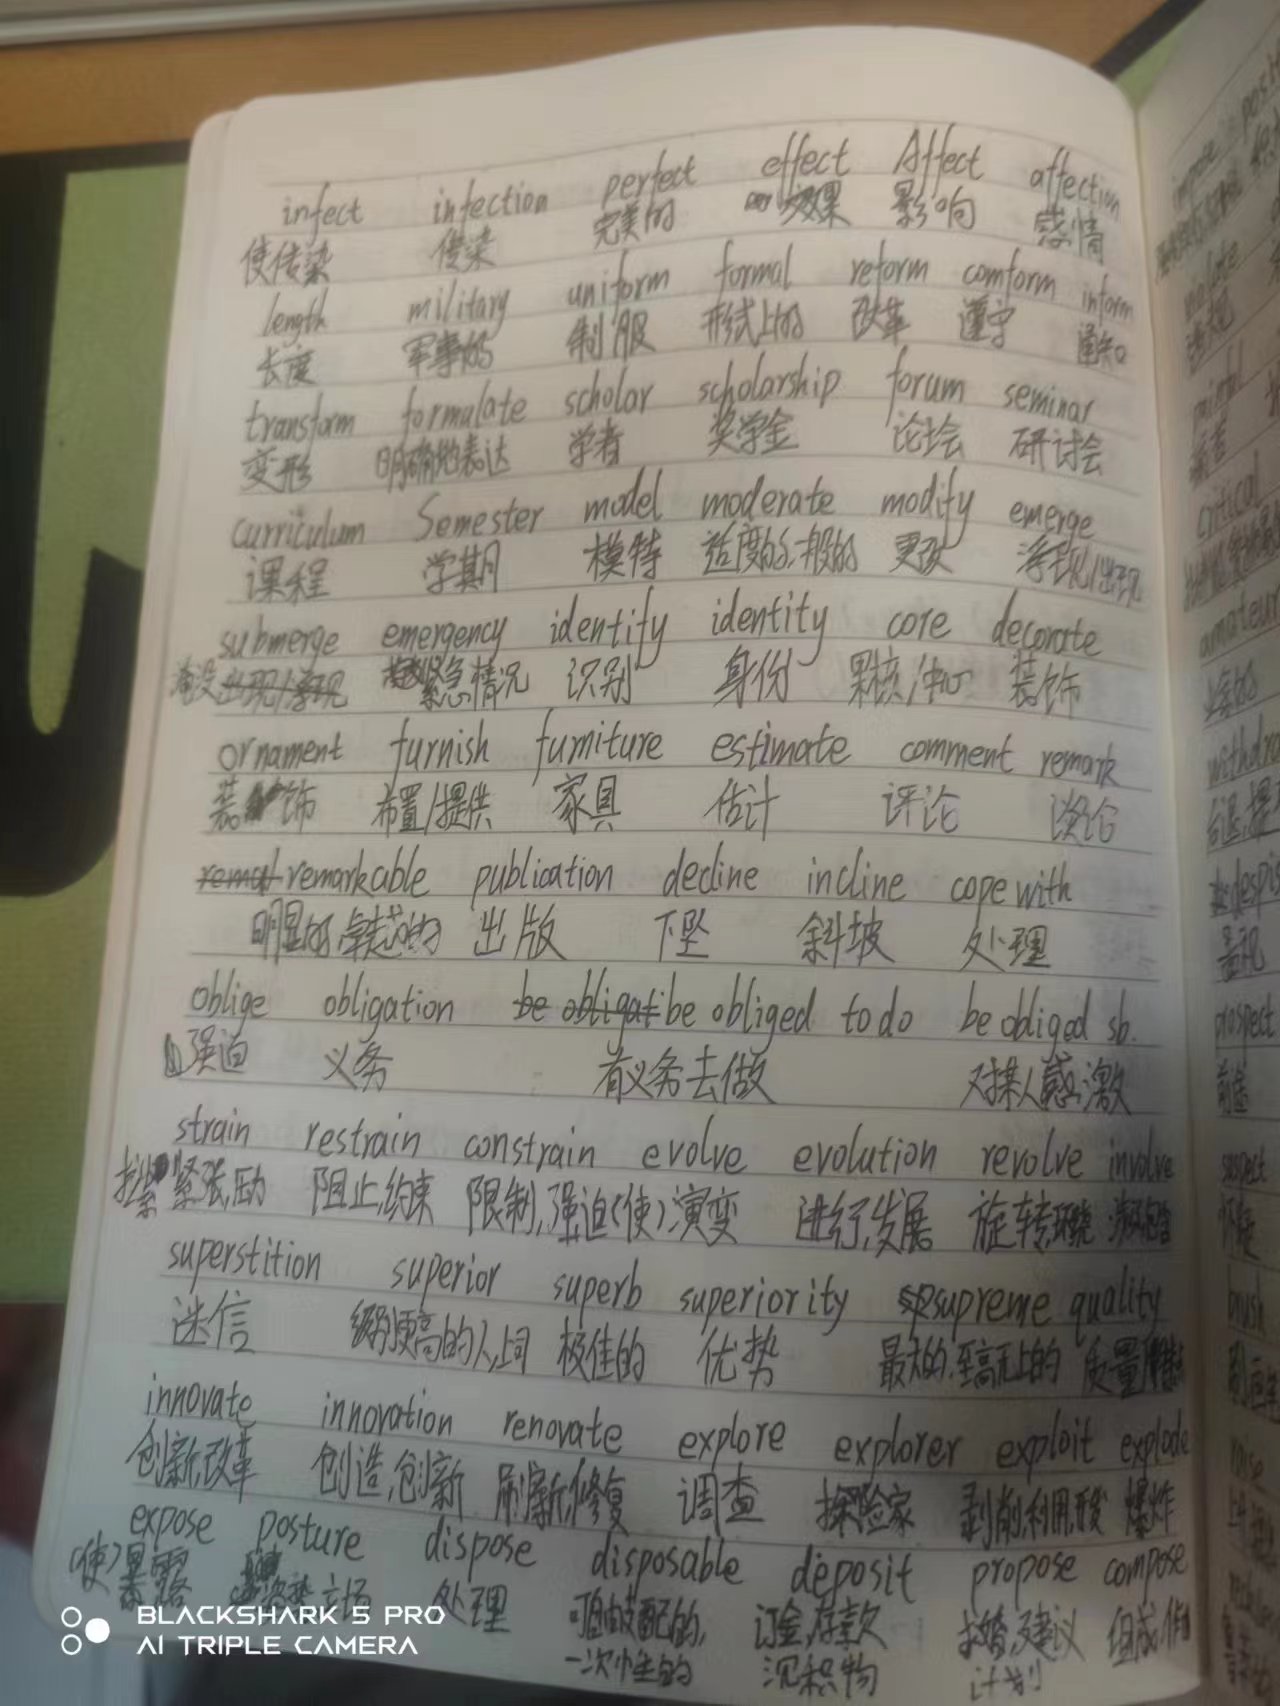 infect infection perfect effect Affect affection
使传染 传染 完美的 效果 影响 感情
length military uniform formal reform comform inform
长度 军事的 制服 形式上的 改革 遵守 通知
transform formulate scholar scholarship forum seminar
变形 明确地表达 学者 奖学金 论坛会 研讨会
curriculum Semester model moderate modify emerge
课程 学期 模特 适度的、一般的 更改 浮现/出现
submerge emergency identify identity core decorate
淹没 紧急情况 识别 身份 果核/中心 装饰
ornament furnish furniture estimate comment remark
装饰 布置/提供 家具 估计 评论 谈论
remarkable publication decline incline cope with
明显的,卓越的 出版 下坠 斜坡 处理
oblige obligation be obligat be obliged to do be obliged sb.
强迫 义务 有义务去做 对某人感激
strain restrain constrain evolve evolution revolve involve
拉紧 紧张, 阻止,约束 限制,强迫 (使)演变 进行,发展 旋转,环绕 涉及,包含
superstition superior superb superiority supreme quality
迷信 级别更高的人,上司 极佳的 优势 最大的,至高无上的 质量
innovate innovation renovate explore explorer exploit explode
创新,改革 创造,创新 刷新,修复 调查 探险家 剥削,利用,开发 爆炸
expose posture dispose disposable deposit propose compose
(使)暴露 姿势 立场 处理 可自由支配的, 订金,存款 求婚,建议 组成,作曲
一次性的 沉积物 计划
impose
isolate
painful
critical
amateur
业余的
withdraw
despis
prospect
前途
suspect
怀疑
brush
BLACKSHARK 5 PRO
AI TRIPLE CAMERA